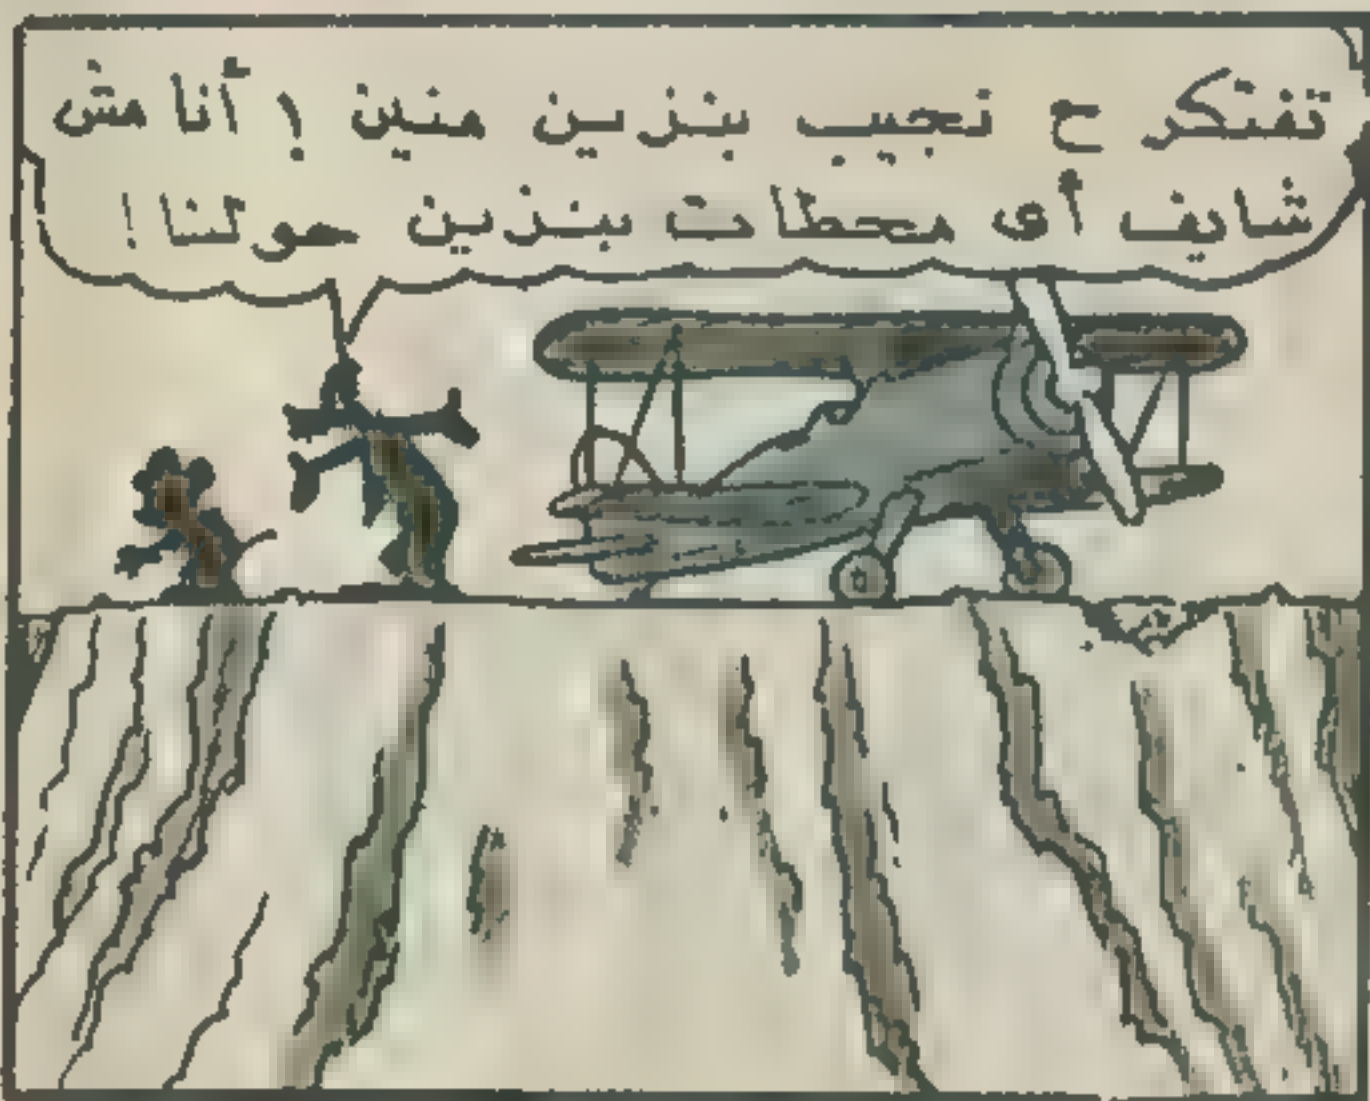 تفتكر ح نجيب بنزين منين ؟ أنا مش
شايف أى محطات بنزين حولنا !